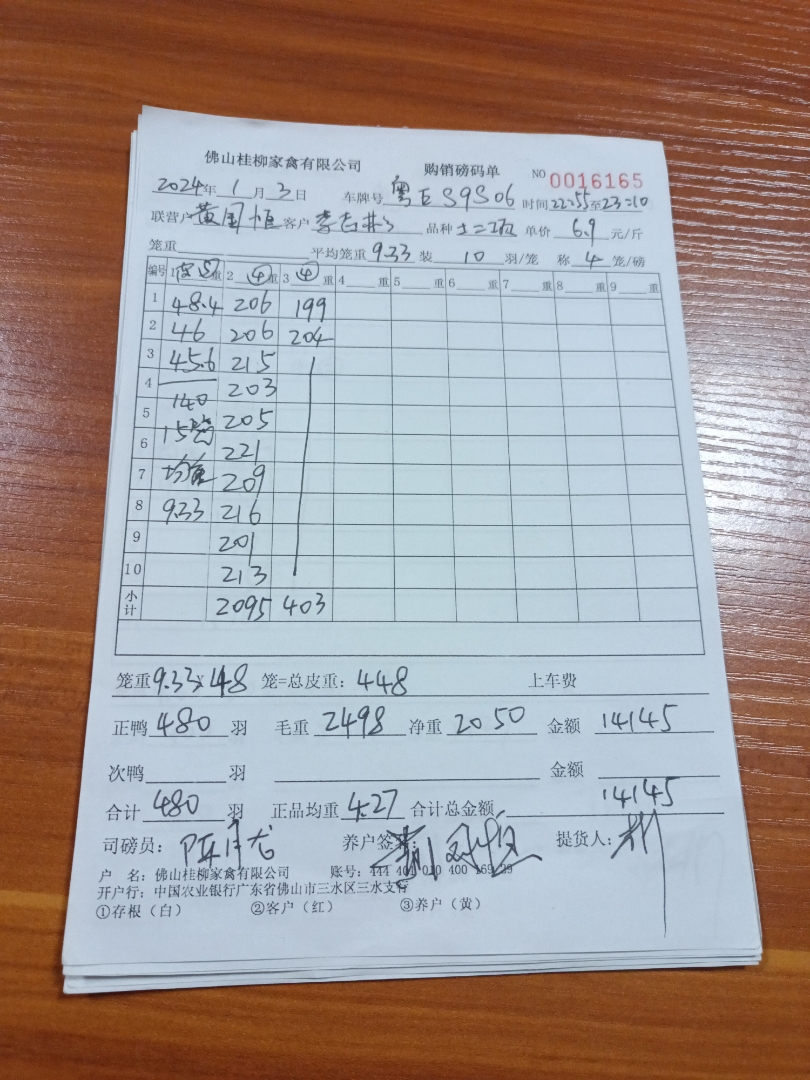 佛山桂柳家禽有限公司 购销磅码单 NO 0016165
2024年 1月 3日 车牌号 粤E S9S06 时间 22:55至23:10
联营户 黄国恒 客户 品种 土二 单价 6.9 元/斤
笼重 平均笼重 9.33 装 10 羽/笼 称 4 笼/磅
编号 1 空⑤ 重 2 ④ 重 3 ④ 重 4 重 5 重 6 重 7 重 8 重 9 重
1 48.4 206 199
2 46 206 204
3 45.6 215
4 140 203
5 15笼 205
6 221
7 均重 209
8 9.33 216
9 201
10 213
小计 2095 403
笼重 9.33 x 48 笼=总皮重: 448 上车费
正鸭 480 羽 毛重 2498 净重 2050 金额 14145
次鸭 羽 金额
合计 480 羽 正品均重 4.27 合计总金额 14145
司磅员: 养户签名: 提货人:
户 名: 佛山桂柳家禽有限公司 账号: 444 401 010 400 169 29
开户行: 中国农业银行广东省佛山市三水区三水支行
①存根(白) ②客户(红) ③养户(黄)